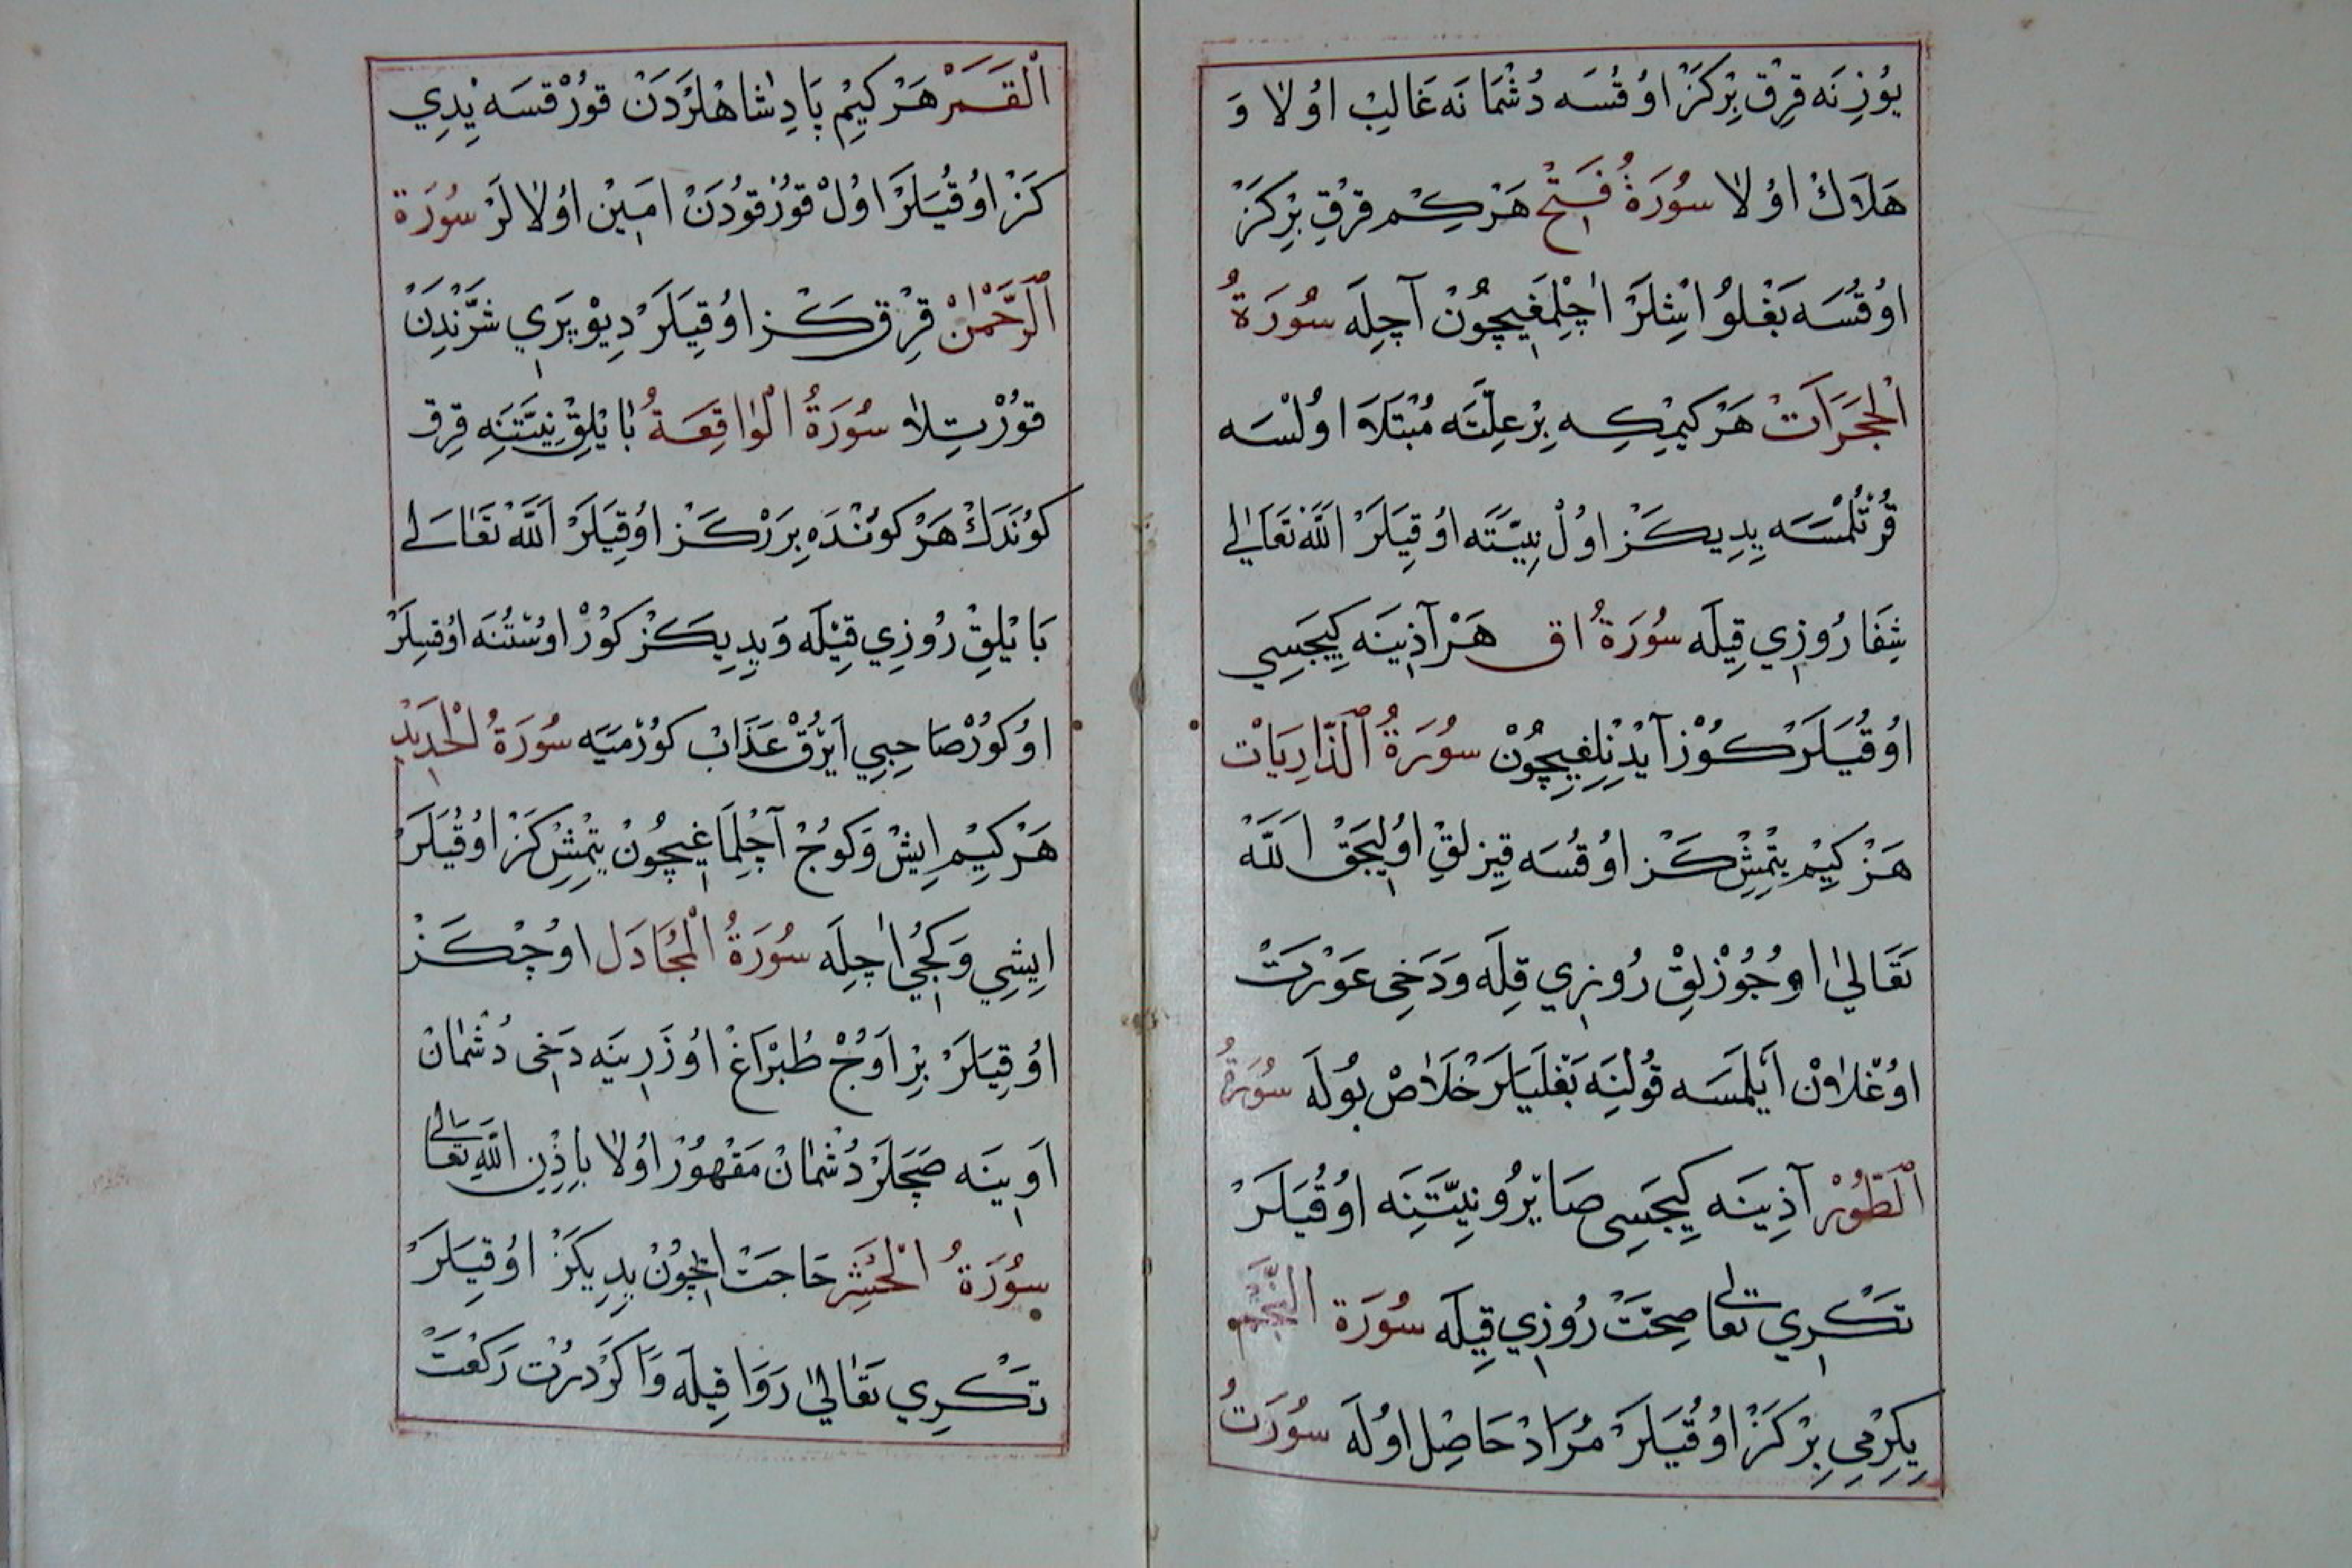 يُوزِنَه قِرْق بِرْكَز اوُقُسَه دُشْمَانَه غَالِبْ اوُلا وَ
هَلَاكْ اوُلا سُورَةُ فَتِحْ هَرْكِم قِرْقِ بِرْكَزْ
اوُقُسَه بَغْلوُ اِشْلَرْ اٰچِلْمَغِيچُونْ آچِلَه سُورَةُ
الْحُجَرَاتْ هَرْكِيمْكِه بِرْ عِلَّتَه مُبْتَلَاَ اوُلْسَه
قُرْتُلْمَسَه يِدِيكَزْ اوُلْ نِيَّتَه اوُقِيَلَرْ اللَّه تَعَالٰي
شِفَا رُوزِي قِيلَه سُورَةُ اق هَرْ آذِينَه كِيجَسِي
اوُقُيَلَرْ كوُزْ آيْدِنْلِغِيچُونْ سُورَةُ الذَّارِيَاتْ
هَرْكِيمْ يِتْمِشْكَزْ اوُقُسَه قِيزلِقْ اوُلِيجَقْ اللَّه
تَعَالىٰ اوُجُوزْلِقْ رُوزِي قِلَه وَدَخِي عَوْرَتْ
اوُغْلَاوْن اَيْلَمَسَه قُولْنِيَه بَغْلَيَلَرْ خَلَاصْ بُولَه سُورَةُ
الطُّورْ آذِينَه كِيجَسِي صَايْرُو نِيَّتِنَه اوُقُيَلَرْ
تَكْرِي تعالى صِحَّتْ رُوزِي قِيلَه سُورَة النَّجْم
يِكِرْمِي بِرْكَزْ اوُقُيَلَرْ مُرَادْ حَاصِل اوُلَه سُورَتُ
الْقَمَرْ هَرْكِيمْ پَادِشَاهْلَرْدَنْ قوُرْقسَه يْدِي
كَزْ اوُقُيَلَرْ اوُلْ قوُرْقوُدَنْ اَمِينْ اوُلالَرْ سُورَة
الرَّحْمٰنْ قِرْق كَز اوُقِيَلَرْ دِيوْ پَرِي شَرَّنْدَنْ
قوُرْتِلَا سُورَةُ الْوَاقِعَةُ بَايْلِقْ نِيَّتِنَه قِرق
كوُنَدَكْ هَرْ كوُنْدَه بِرَرْكَز اوُقِيَلَرْ اللَّه تَعَالى
بَايْلِقْ رُوزِي قِيْلَه وَيِدِيكَزْ كوُرْ اوُسْتُنَه اوُقِيلَرْ
اوُ كوُرْ صَاحِبِي اَيْرُقْ عَذَابْ كوُرْمَيَه سُورَةُ الْحَدِيدْ
هَرْكِيمْ اِيشْ وَكوُجْ آچِلْمَاغِيچُونْ يِتْمِشْ كَزْ اوُقُيَلَرْ
اِيشِي وَكُجِي اٰچِلَه سُورَةُ الْمُجَادَل اوُچْكَزْ
اوُقِيَلَرْ بِرْ اَوُجْ طُبْرَاغْ اوُزَرِينَه دَخِي دُشْمَانْ
اَوِينَه صَچَلَرْ دُشْمَانْ مَقْهُورْ اوُلا بِاِذْنِ اللَّهِ تعَالى
سُورَةُ الْحَشِرْ حَاجَتْ اِچُونْ يِدِيكَزْ اوُقِيَلَرْ
تَكْرِي تَعَالىٰ رَوَا قِيلَه وَاكَرْ دُرْت رَكْعَتْ